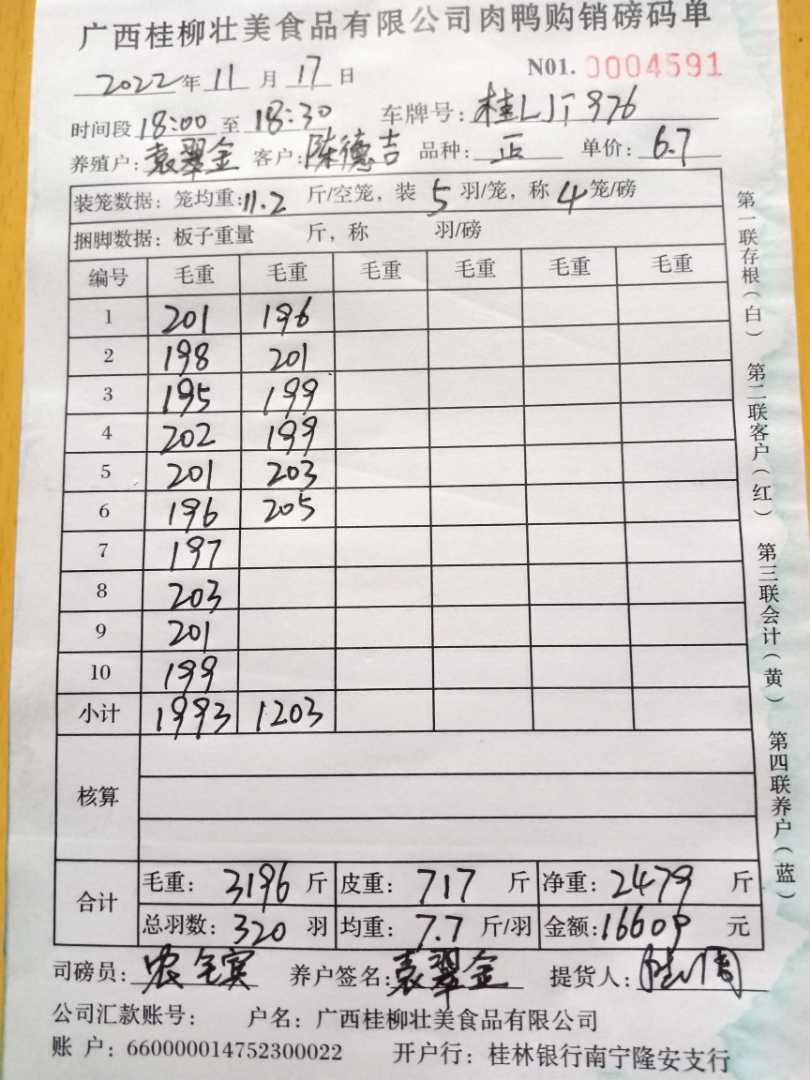 广西桂柳壮美食品有限公司肉鸭购销磅码单
2022年11月17日 N01.0004591
时间段18:00至18:30 车牌号:桂LJT976
养殖户:袁翠金 客户:陈德吉 品种:正 单价:6.7
装笼数据:笼均重:11.2斤/空笼,装5羽/笼,称4笼/磅
捆脚数据:板子重量 斤,称 羽/磅
编号 毛重 毛重 毛重 毛重 毛重 毛重
1 201 196
2 198 201
3 195 199
4 202 199
5 201 203
6 196 205
7 197
8 203
9 201
10 199
小计 1993 1203
核算
合计 毛重:3196斤 皮重:717斤 净重:2479斤
总羽数:320羽 均重:7.7斤/羽 金额:16609元
司磅员:农 养户签名:袁翠金 提货人:
公司汇款账号: 户名:广西桂柳壮美食品有限公司
账 户:660000014752300022 开户行:桂林银行南宁隆安支行
第一联存根(白)
第二联客户(红)
第三联会计(黄)
第四联养户(蓝)